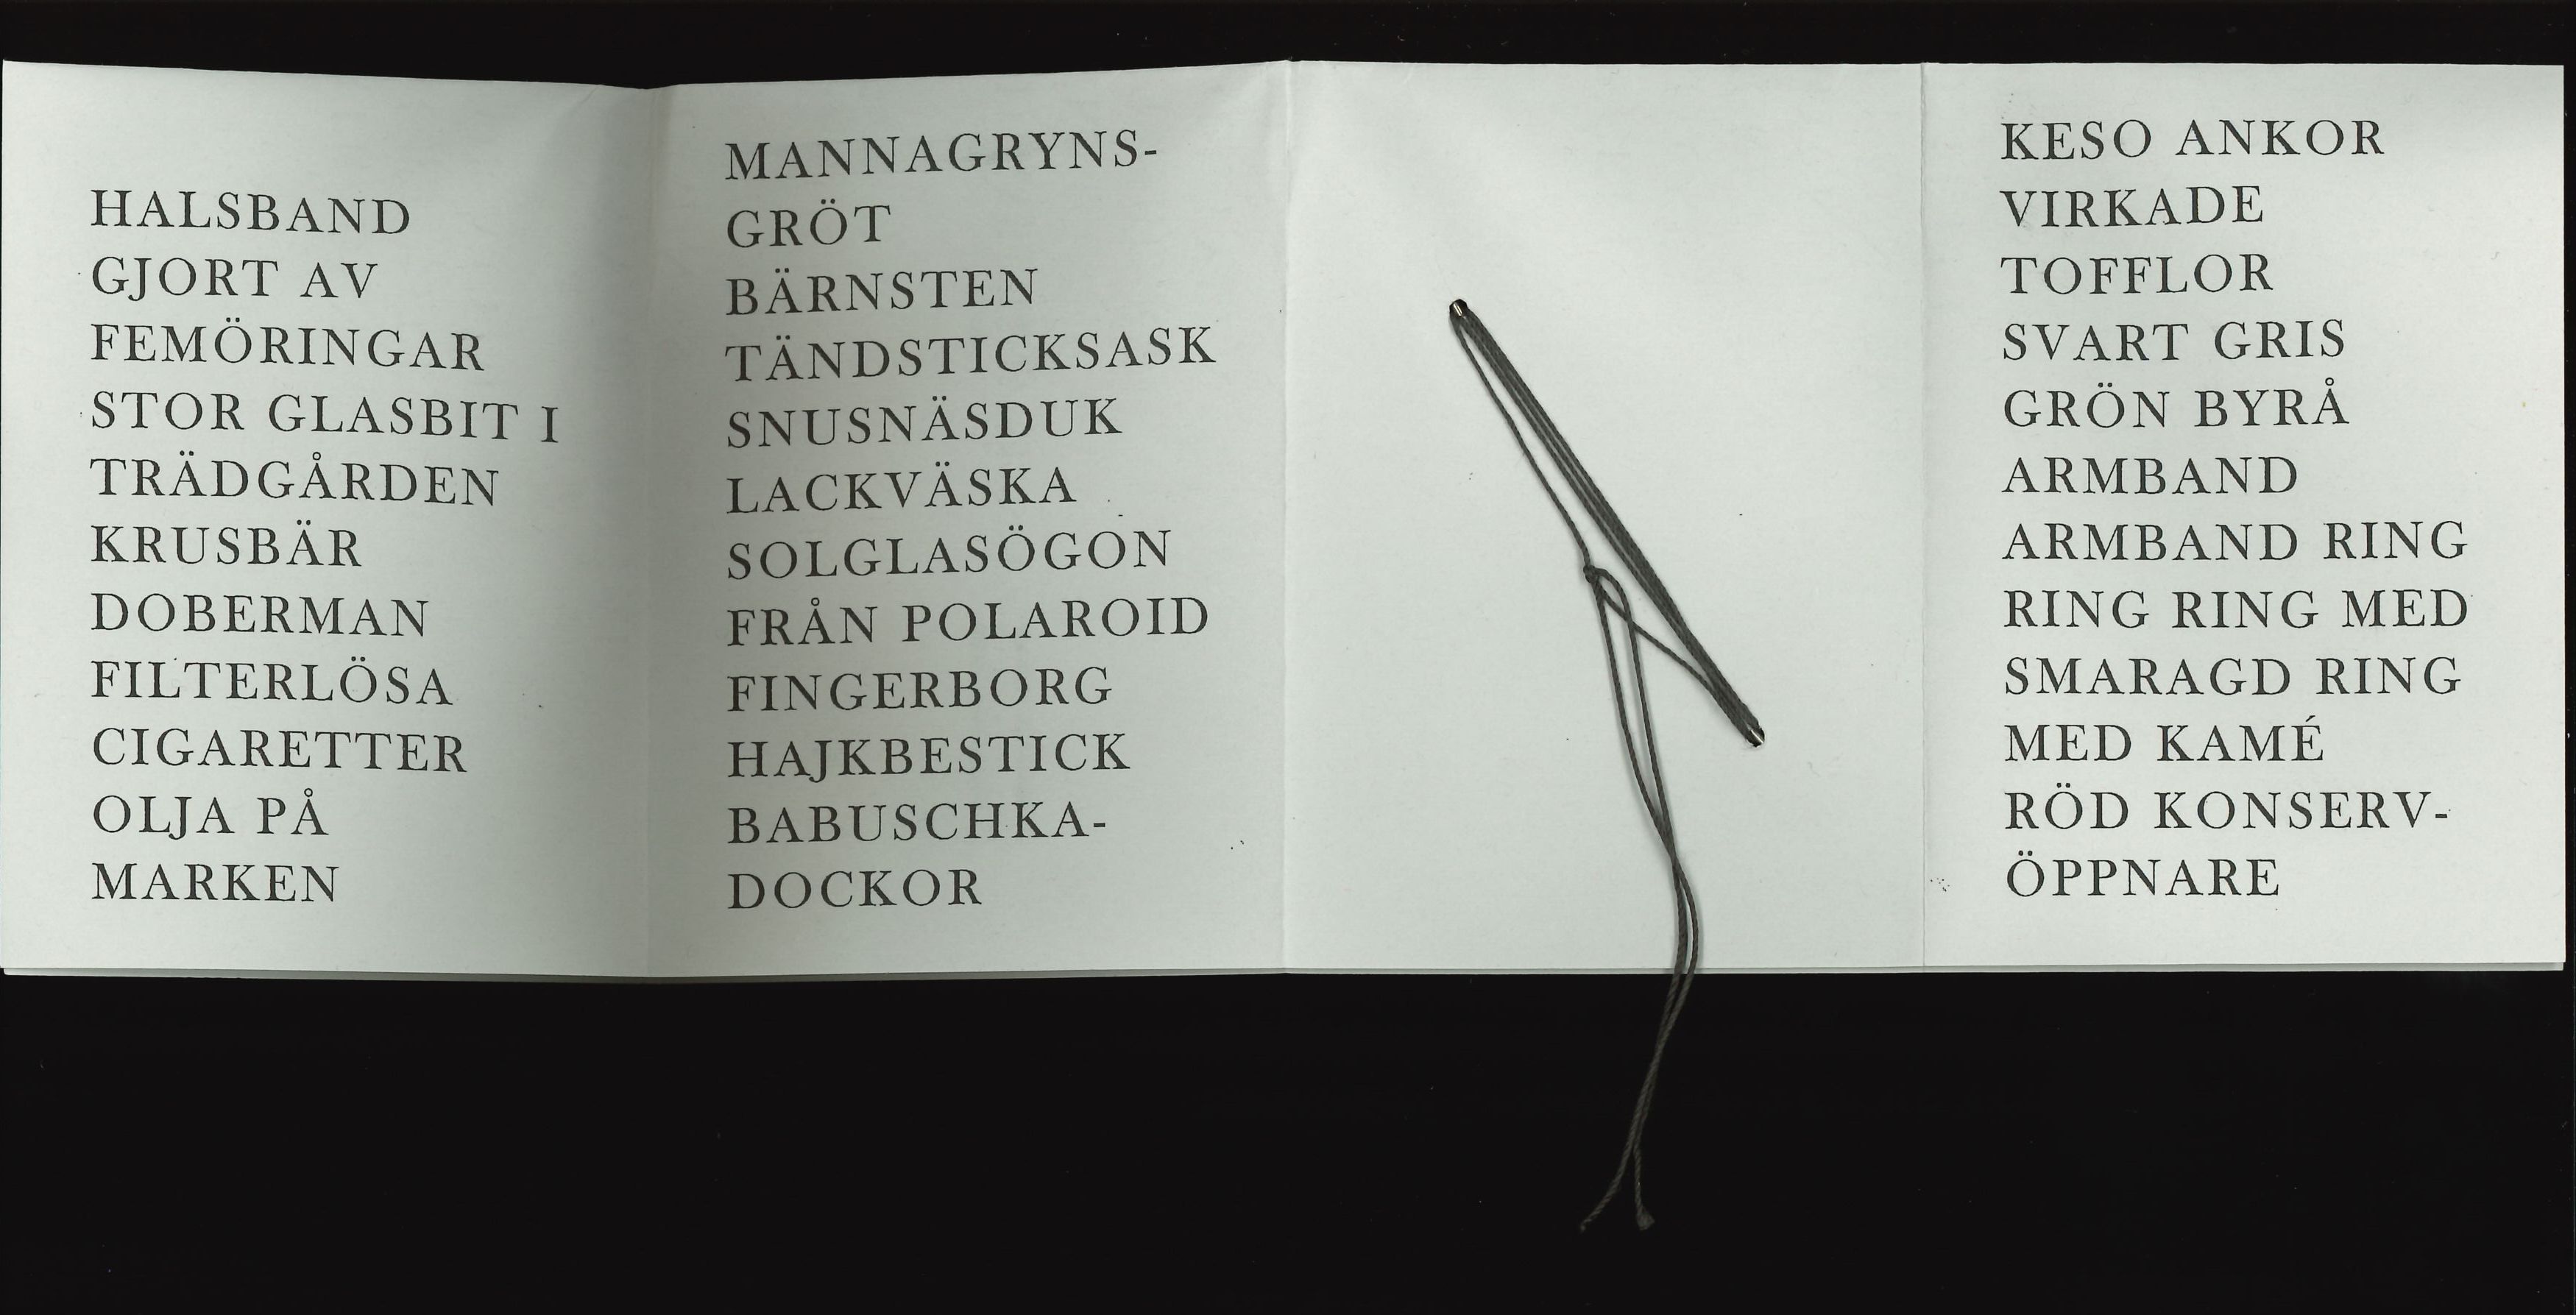 HALSBAND
GJORT AV
FEMÖRINGAR
STOR GLASBIT I
TRÄDGÅRDEN
KRUSBÄR
DOBERMAN
FILTERLÖSA
CIGARETTER
OLJA PÅ
MARKEN
MANNAGRYNS-
GRÖT
BÄRNSTEN
TÄNDSTICKSASK
SNUSNÄSDUK
LACKVÄSKA
SOLGLASÖGON
FRÅN POLAROID
FINGERBORG
HAJKBESTICK
BABUSCHKA-
DOCKOR
KESO ANKOR
VIRKADE
TOFFLOR
SVART GRIS
GRÖN BYRÅ
ARMBAND
ARMBAND RING
RING RING MED
SMARAGD RING
MED KAMÉ
RÖD KONSERV-
ÖPPNARE